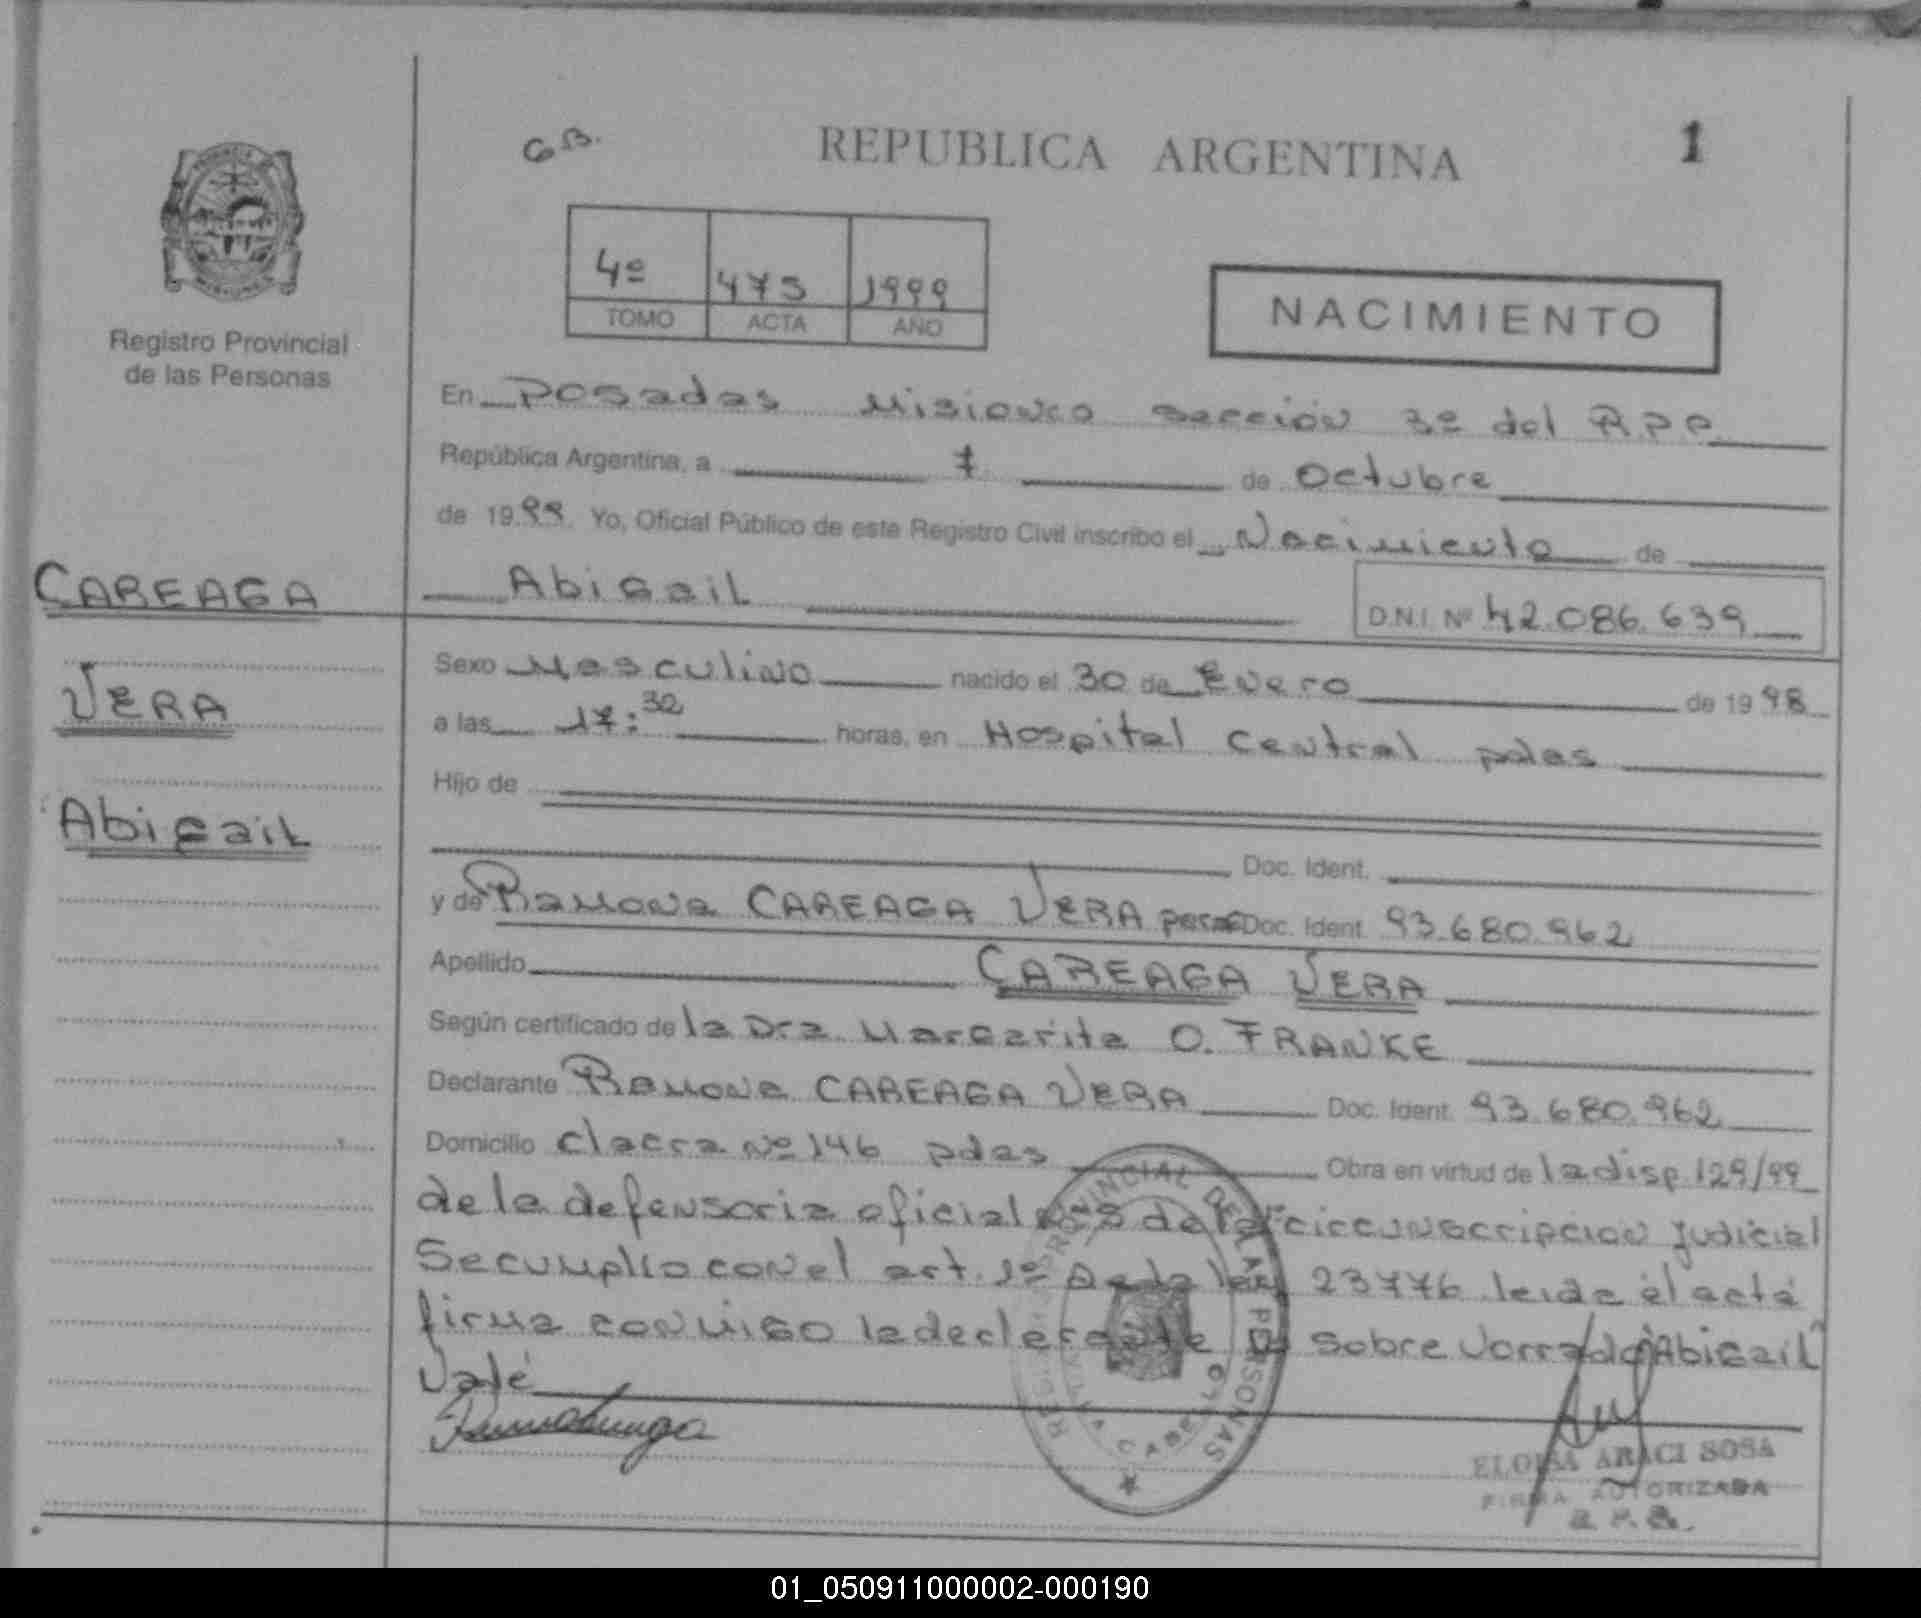 G.B.
REPUBLICA ARGENTINA
1
4º 475 1999
TOMO ACTA AÑO
NACIMIENTO
Registro Provincial
de las Personas
En Posadas Misiones sección 3º del R.P.P.
República Argentina, a 7 de Octubre
de 1999. Yo, Oficial Público de este Registro Civil inscribo el Nacimiento de
CAREAGA
Abigail D.N.I. Nº 42.086.639
VERA
Abigail
Sexo Masculino nacido el 30 de Enero de 1998
a las 17:30 horas, en Hospital Central pdas
Hijo de
Doc. Ident.
y de Ramona CAREAGA VERA Doc. Ident. 93.680.962
Apellido CAREAGA VERA
Según certificado de la Dra. Margarita O. FRANKE
Declarante Ramona CAREAGA VERA Doc. Ident. 93.680.962
Domicilio chacra Nº 146 pdas Obra en virtud de la disp. 129/99
de la defensoria oficial de la circunscripcion judicial
Se cumplio con el art. 1º de la ley 23776 leida el acta
firma conmigo la declarante sobre borrado "Abigail"
Vale
REGISTRO PROVINCIAL DE LAS PERSONAS
VILLA CABELLO
ELOISA ARACI SOSA
FIRMA AUTORIZADA
01_050911000002-000190